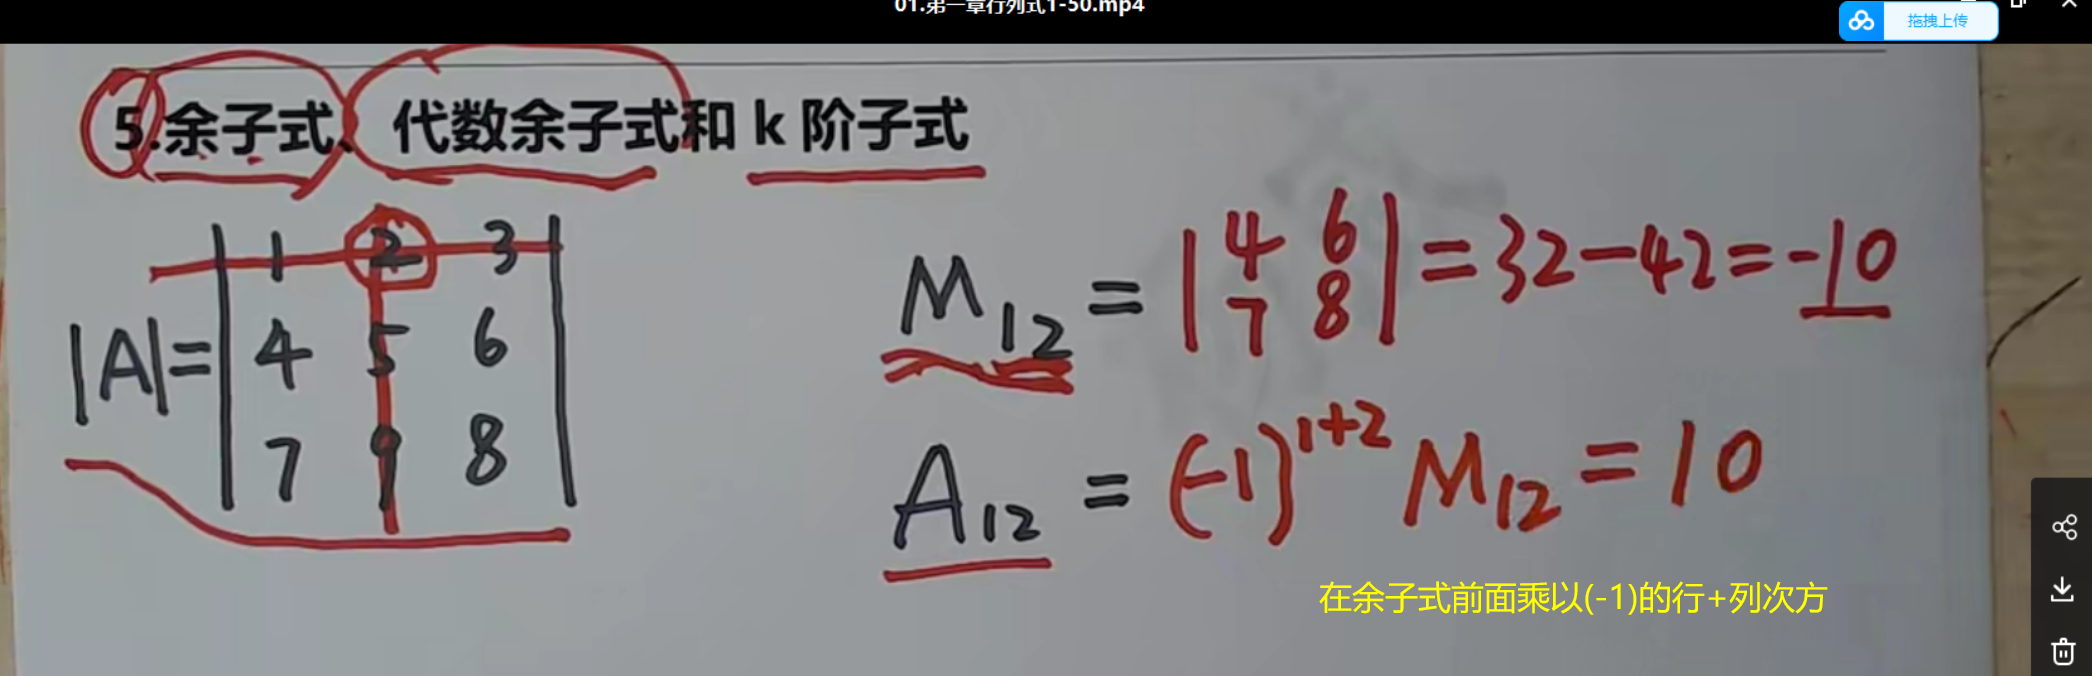 01.第一章行列式1-50.mp4
拖拽上传
5.余子式、代数余子式和 k 阶子式
|A|=
1 2 3
4 5 6
7 9 8
M12 = |4 6
7 8| = 32-42=-10
A12 = (-1)^1+2 M12 = 10
在余子式前面乘以(-1)的行+列次方